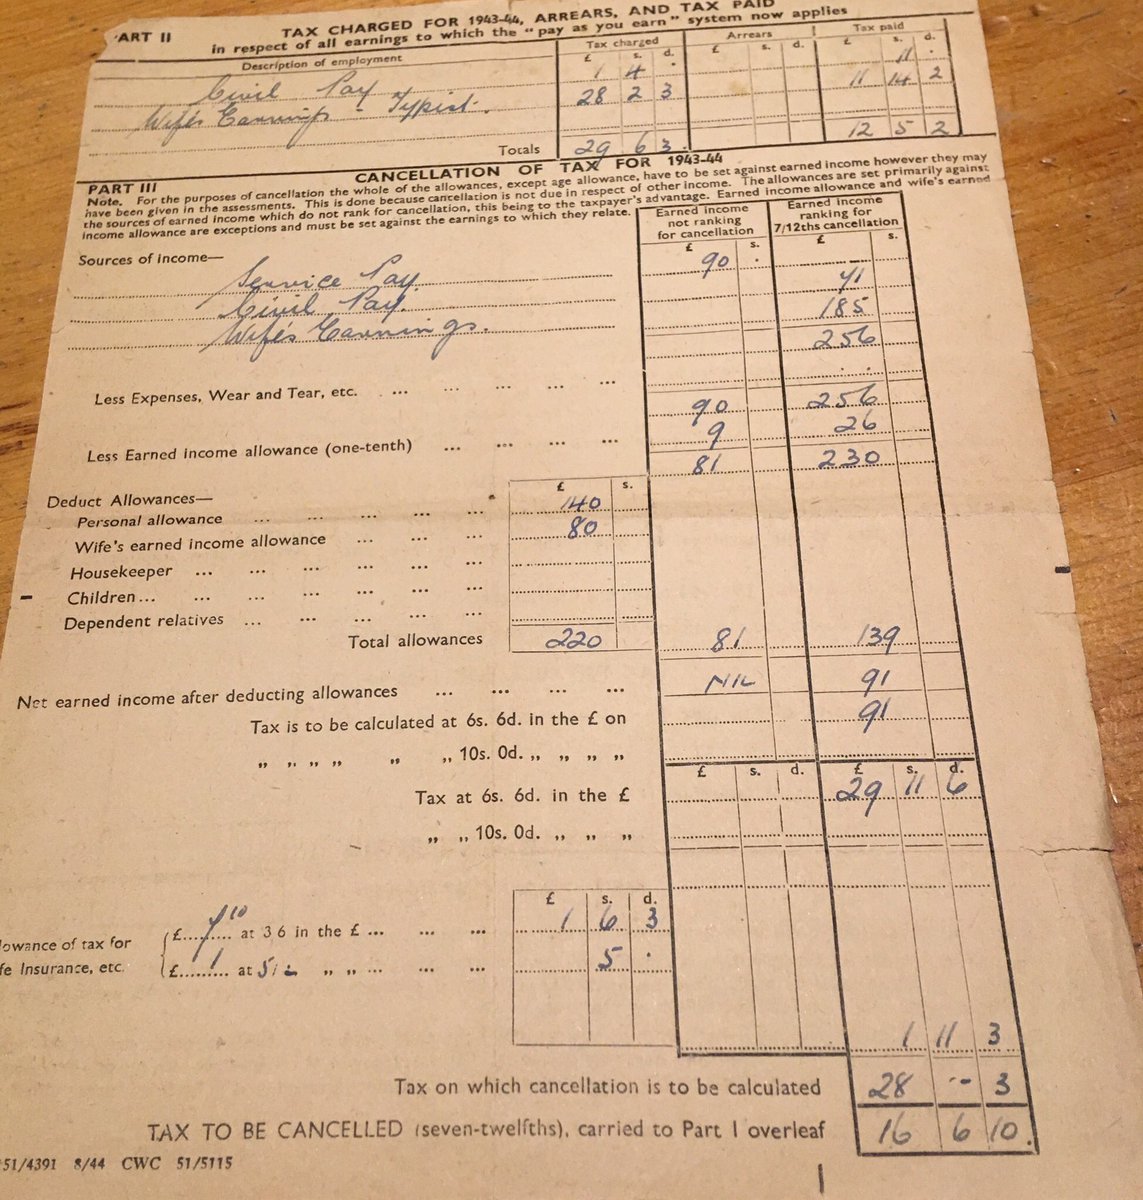 ART II TAX CHARGED FOR 1943-44, ARREARS, AND TAX PAID
in respect of all earnings to which the "pay as you earn" system now applies
Description of employment Tax charged Arrears Tax paid
£ s. d. £ s. d. £ s. d.
Civil Pay 1 4 · 11 ·
Wife's Earnings - Typist. 28 2 3 11 14 2
Totals 29 6 3 12 5 2
PART III CANCELLATION OF TAX FOR 1943-44
Note. For the purposes of cancellation the whole of the allowances, except age allowance, have to be set against earned income however they may
have been given in the assessments. This is done because cancellation is not due in respect of other income. The allowances are set primarily against
the sources of earned income which do not rank for cancellation, this being to the taxpayer's advantage. Earned income allowance and wife's earned
income allowance are exceptions and must be set against the earnings to which they relate.
Earned income not ranking for cancellation
Earned income ranking for 7/12ths cancellation
£ s. £ s.
Sources of income—
Service Pay. 90 · —
Civil Pay. 71
Wife's Earnings. 185
256
Less Expenses, Wear and Tear, etc. ... ... ... ... ... · ·
90 256
Less Earned income allowance (one-tenth) ... ... ... ... 9 26
81 230
£ s.
Deduct Allowances—
Personal allowance ... ... ... ... ... 140
Wife's earned income allowance ... ... ... 80
Housekeeper ... ... ... ... ... ...
Children... ... ... ... ... ...
Dependent relatives ... ... ... ... ...
Total allowances 220 81 139
Net earned income after deducting allowances ... ... ... ... NIL 91
Tax is to be calculated at 6s. 6d. in the £ on 91
" " " " " " 10s. 0d. " " " "
£ s. d. £ s. d.
Tax at 6s. 6d. in the £ 29 11 6
" " 10s. 0d. " " "
£ s. d.
lowance of tax for £ 7 10 at 3 6 in the £ ... ... ... 1 6 3
fe Insurance, etc. £ 1 at 5/- " " ... ... ... 5 ·
1 11 3
Tax on which cancellation is to be calculated 28 -- 3
TAX TO BE CANCELLED (seven-twelfths), carried to Part I overleaf 16 6 10.
51/4391 8/44 CWC 51/5115